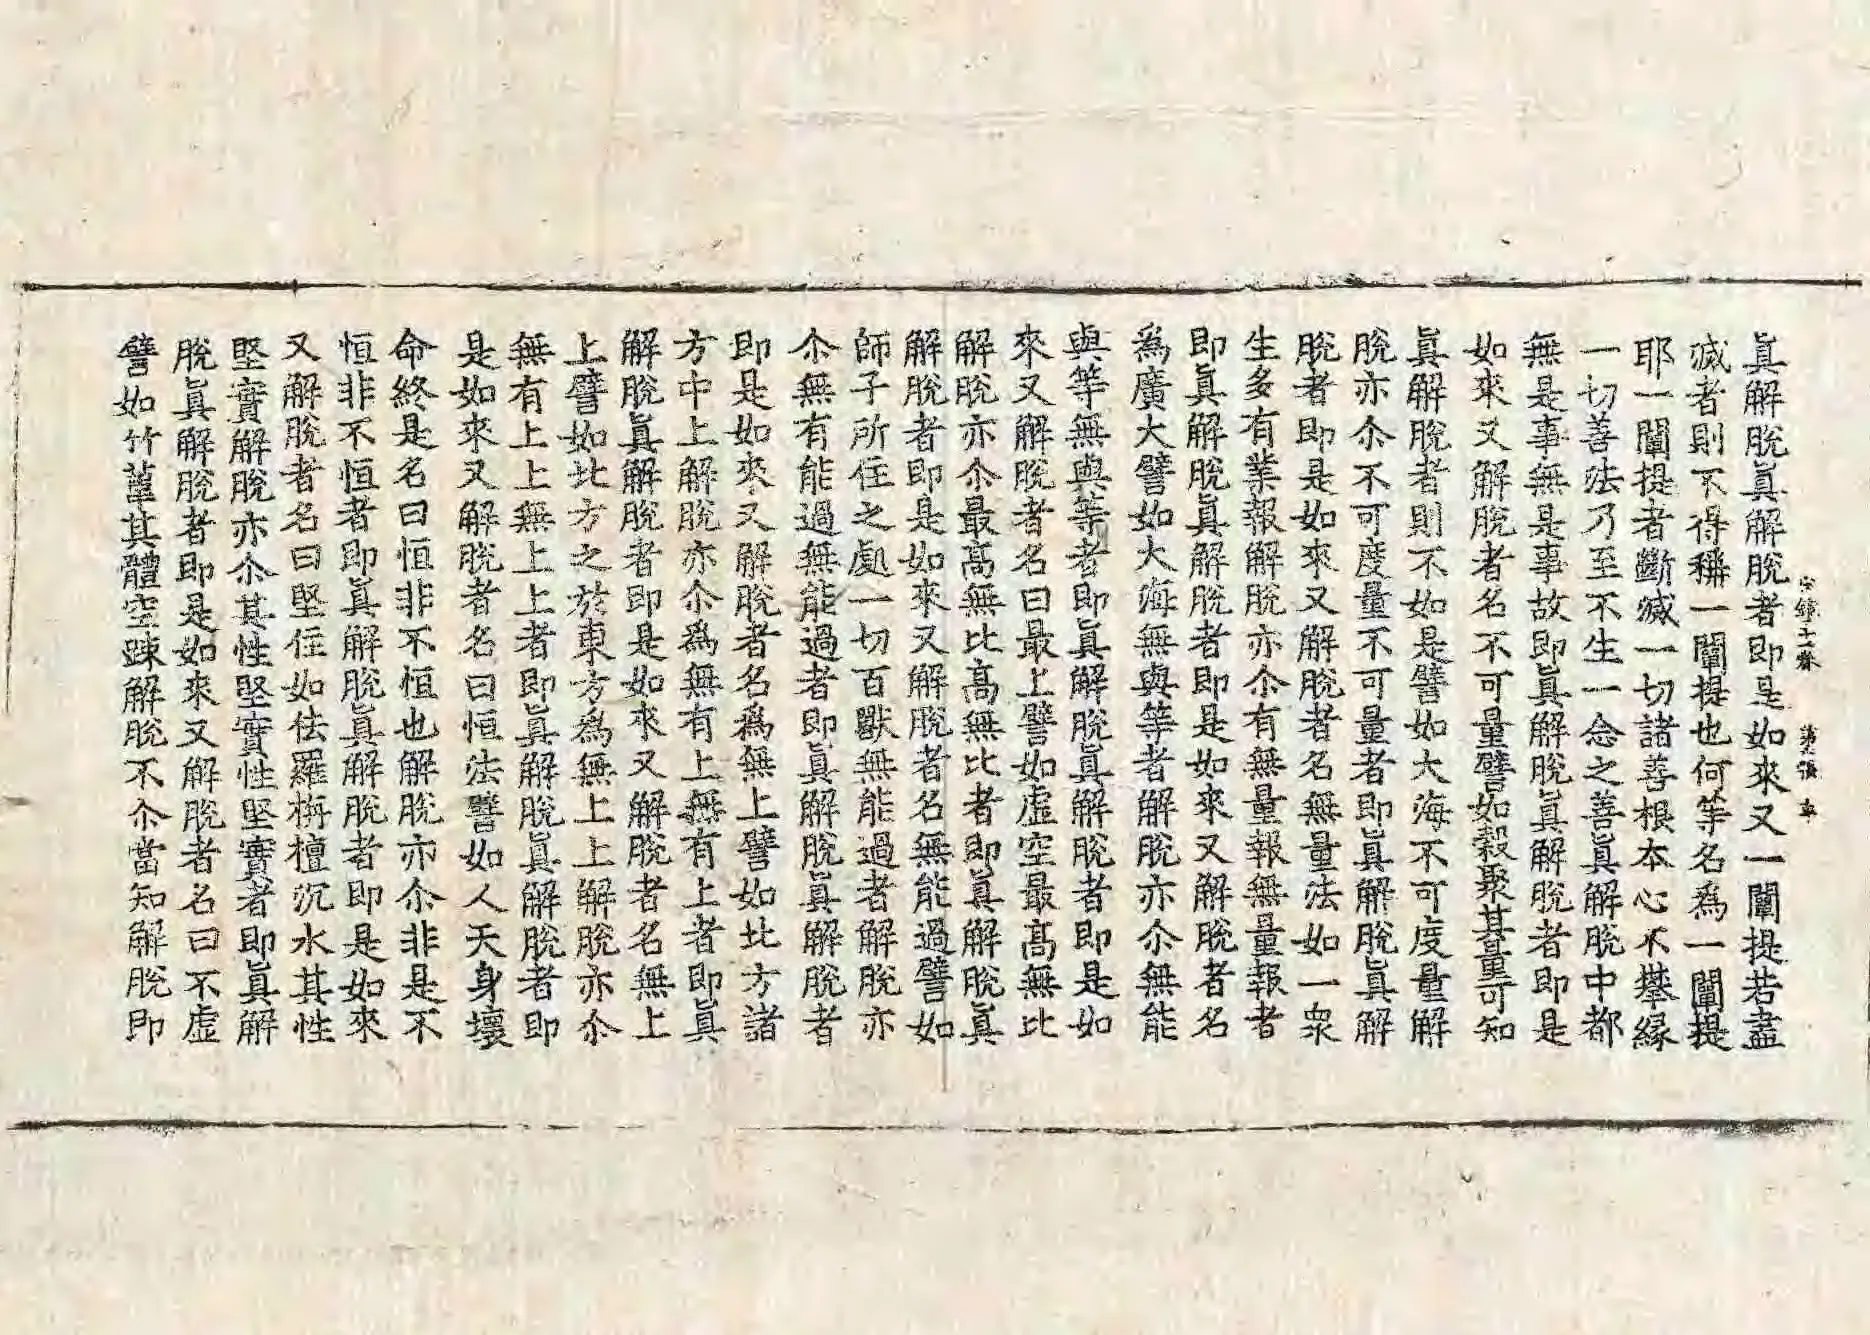 眞解脫眞解脫者即是如來又一闡提若盡
滅者則不得稱一闡提也何等名爲一闡提
耶一闡提者斷滅一切諸善根本心不攀緣
一切善法乃至不生一念之善眞解脫中都
無是事無是事故即眞解脫眞解脫者即是
如來又解脫者名不可量譬如穀聚其量可知
眞解脫者則不如是譬如大海不可度量解
脫亦尒不可度量不可量者即眞解脫眞解
脫者即是如來又解脫者名無量法如一衆
生多有業報解脫亦尒有無量報無量報者
即眞解脫眞解脫者即是如來又解脫者名
爲廣大譬如大海無與等者解脫亦尒無能
與等無與等者即眞解脫眞解脫者即是如
來又解脫者名曰最上譬如虛空最高無比
解脫亦尒最高無比高無比者即眞解脫眞
解脫者即是如來又解脫者名無能過譬如
師子所住之處一切百獸無能過者解脫亦
尒無有能過無能過者即眞解脫眞解脫者
即是如來又解脫者名爲無上譬如北方諸
方中上解脫亦尒爲無有上無有上者即眞
解脫眞解脫者即是如來又解脫者名無上
上譬如北方之於東方爲無上上解脫亦尒
無有上上無上上者即眞解脫眞解脫者即
是如來又解脫者名曰恒法譬如人天身壞
命終是名曰恒非不恒也解脫亦尒非是不
恒非不恒者即眞解脫眞解脫者即是如來
又解脫者名曰堅住如佉羅栴檀沉水其性
堅實解脫亦尒其性堅實性堅實者即眞解
脫眞解脫者即是如來又解脫者名曰不虛
譬如竹葦其體空踈解脫不尒當知解脫即